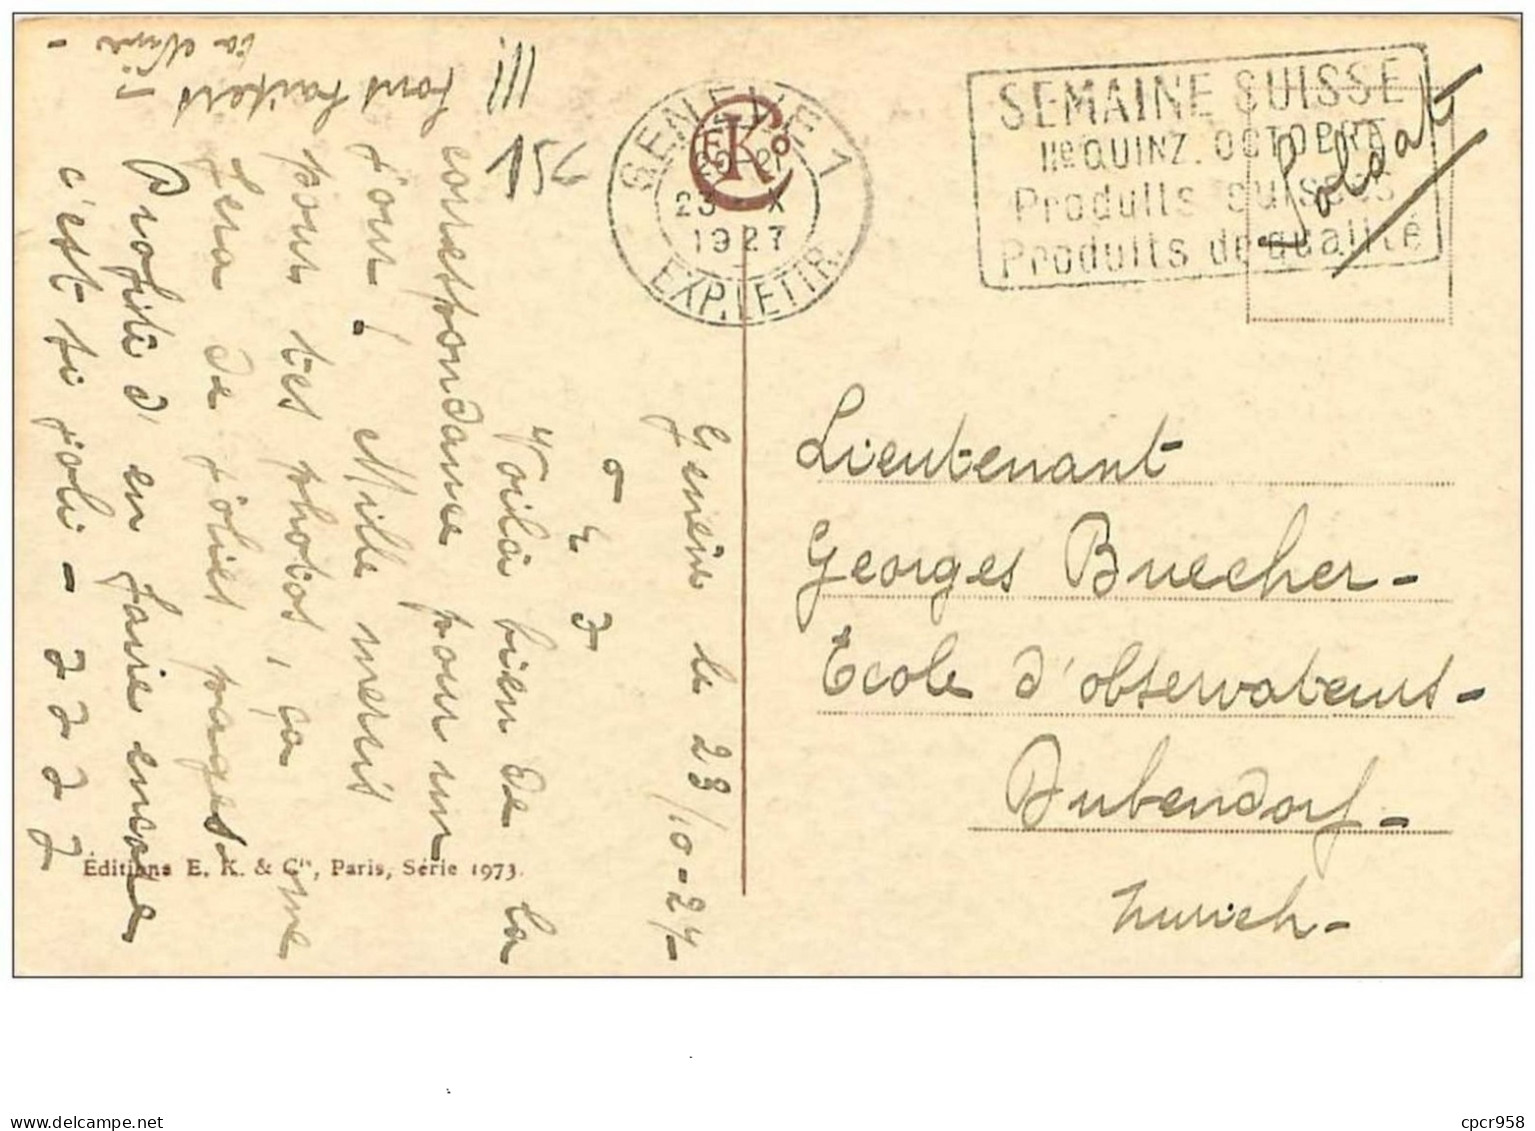 Genève le 23/10-27-
Voilà bien de la
correspondance pour un
jour! Mille mercis
pour tes photos, ça me
fera de jolies pages
Profite d'en faire encore
c'est si joli -
156
GENEVE 1
23 X
1927
EXP. LETTR.
EK Co
SEMAINE SUISSE
IIe QUINZ. OCTOBRE
Produits suisses
Produits de qualité
Soldat
Lieutenant
Georges Buecher-
Ecole d'observateurs-
Dubendorf-
Zurich-
Éditions E. K. & Cie, Paris, Série 1973.
cpcr958